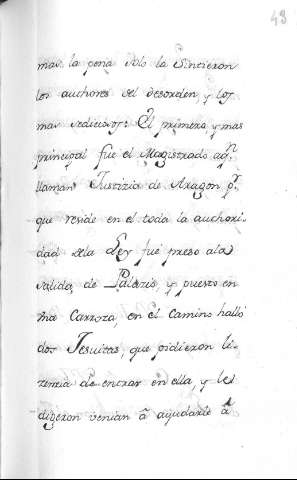 43
mas la pena solo la sintieron
los auchores del desorden, y los
mas sediciosos: El primero y mas
principal fue el Magistrado aqn
llaman Justizia de Aragon pr
que reside en el toda la auchori
dad dela Ley fue preso ala
salida de Palazio, y puesto en
una Carroza, en el Camino halló
dos Jesuitas, que pidieron li
zenzia de entrar en ella, y le
digeron venian â ayudarle â